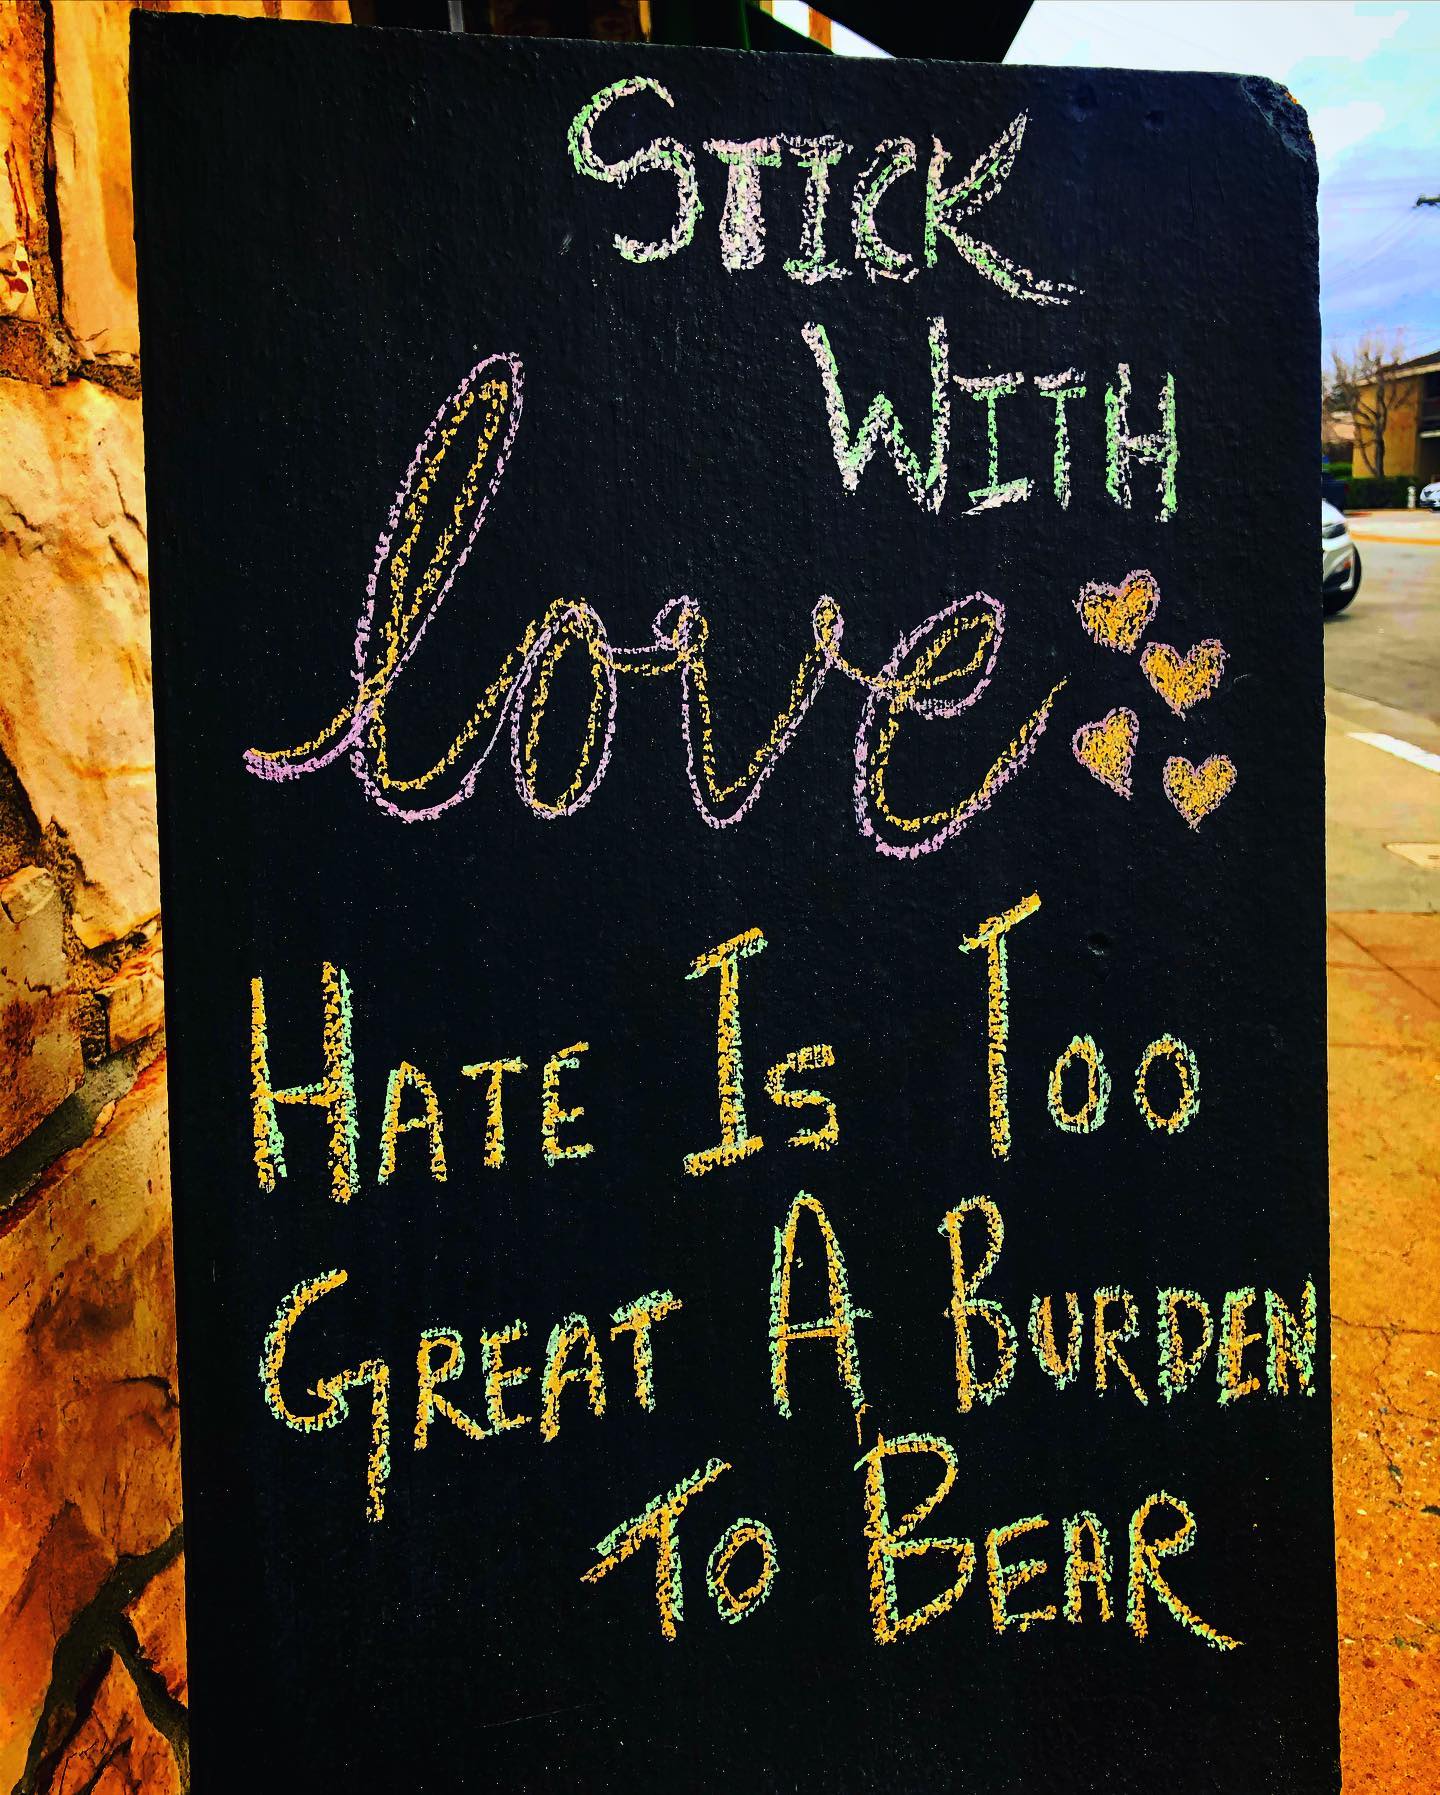 STICK
WITH
love
HATE IS TOO
GREAT A BURDEN
TO BEAR